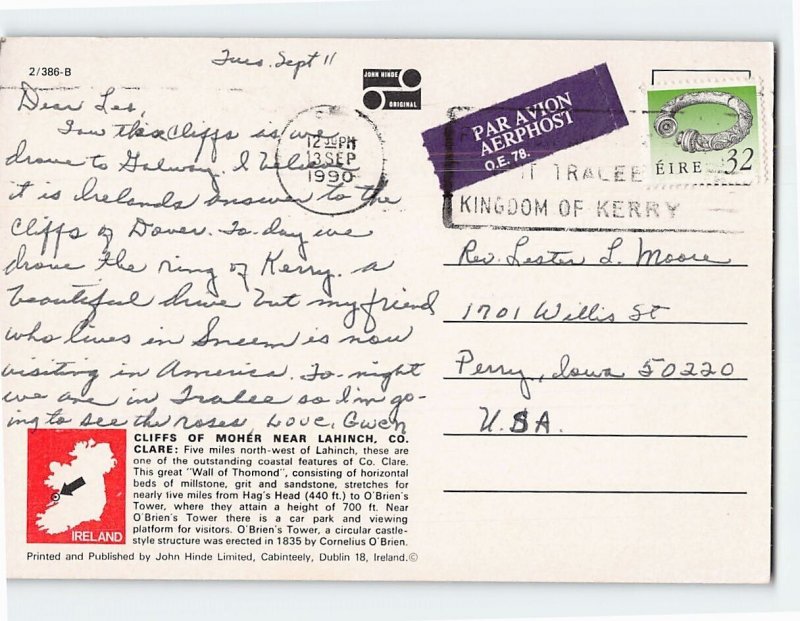 2/386-B
Tues. Sept 11
JOHN HINDE
ORIGINAL
Dear Les,
Saw the cliffs as we
drove to Galway. I believe
it is Irelands answer to the
cliffs of Dover. To-day we
drove the ring of Kerry. a
beautiful drive but my friend
who lives in Sneem is now
visiting in America. To-night
we are in Tralee so I'm go-
ing to see the roses, Love, Gwen
12 30 PM
13 SEP
1990
PAR AVION
AERPHOST
O.E. 78.
TRALEE
KINGDOM OF KERRY
ÉIRE 32
Rev. Lester L. Moore
1701 Willis St
Perry, Iowa 50220
U.S.A.
CLIFFS OF MOHER NEAR LAHINCH, CO.
CLARE: Five miles north-west of Lahinch, these are
one of the outstanding coastal features of Co. Clare.
This great "Wall of Thomond", consisting of horizontal
beds of millstone, grit and sandstone, stretches for
nearly five miles from Hag's Head (440 ft.) to O'Brien's
Tower, where they attain a height of 700 ft. Near
O'Brien's Tower there is a car park and viewing
platform for visitors. O'Brien's Tower, a circular castle-
style structure was erected in 1835 by Cornelius O'Brien.
IRELAND
Printed and Published by John Hinde Limited, Cabinteely, Dublin 18, Ireland.©